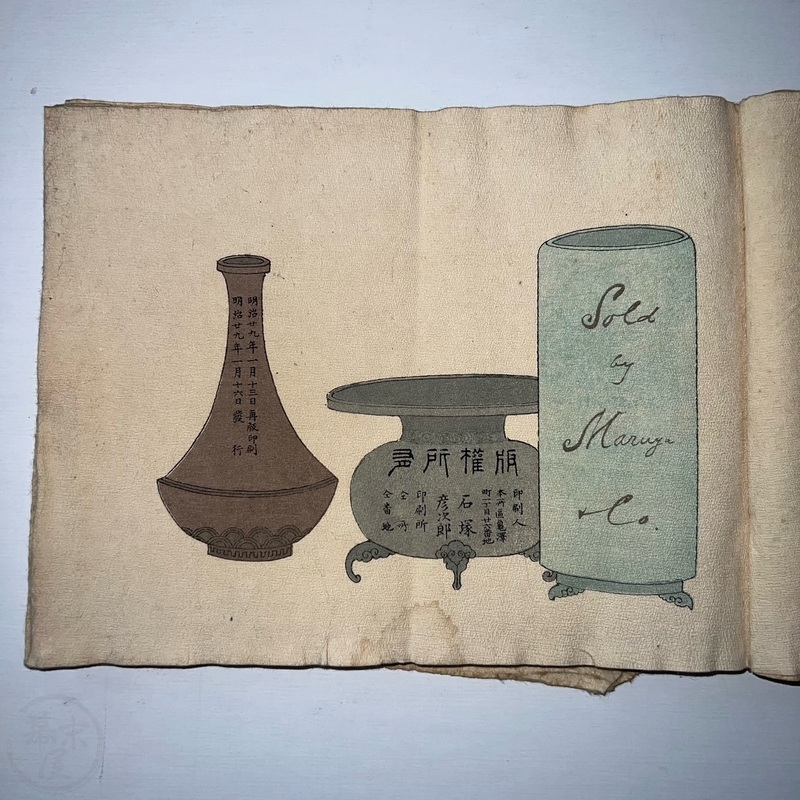 明治廿九年一月十三日再版印刷
明治廿九年一月十六日發行
版權所有
印刷人
本所區龜澤
町一丁目廿六番地
石塚
彦次郎
印刷所
仝
仝番地
Sold
by
Maruya
& Co.